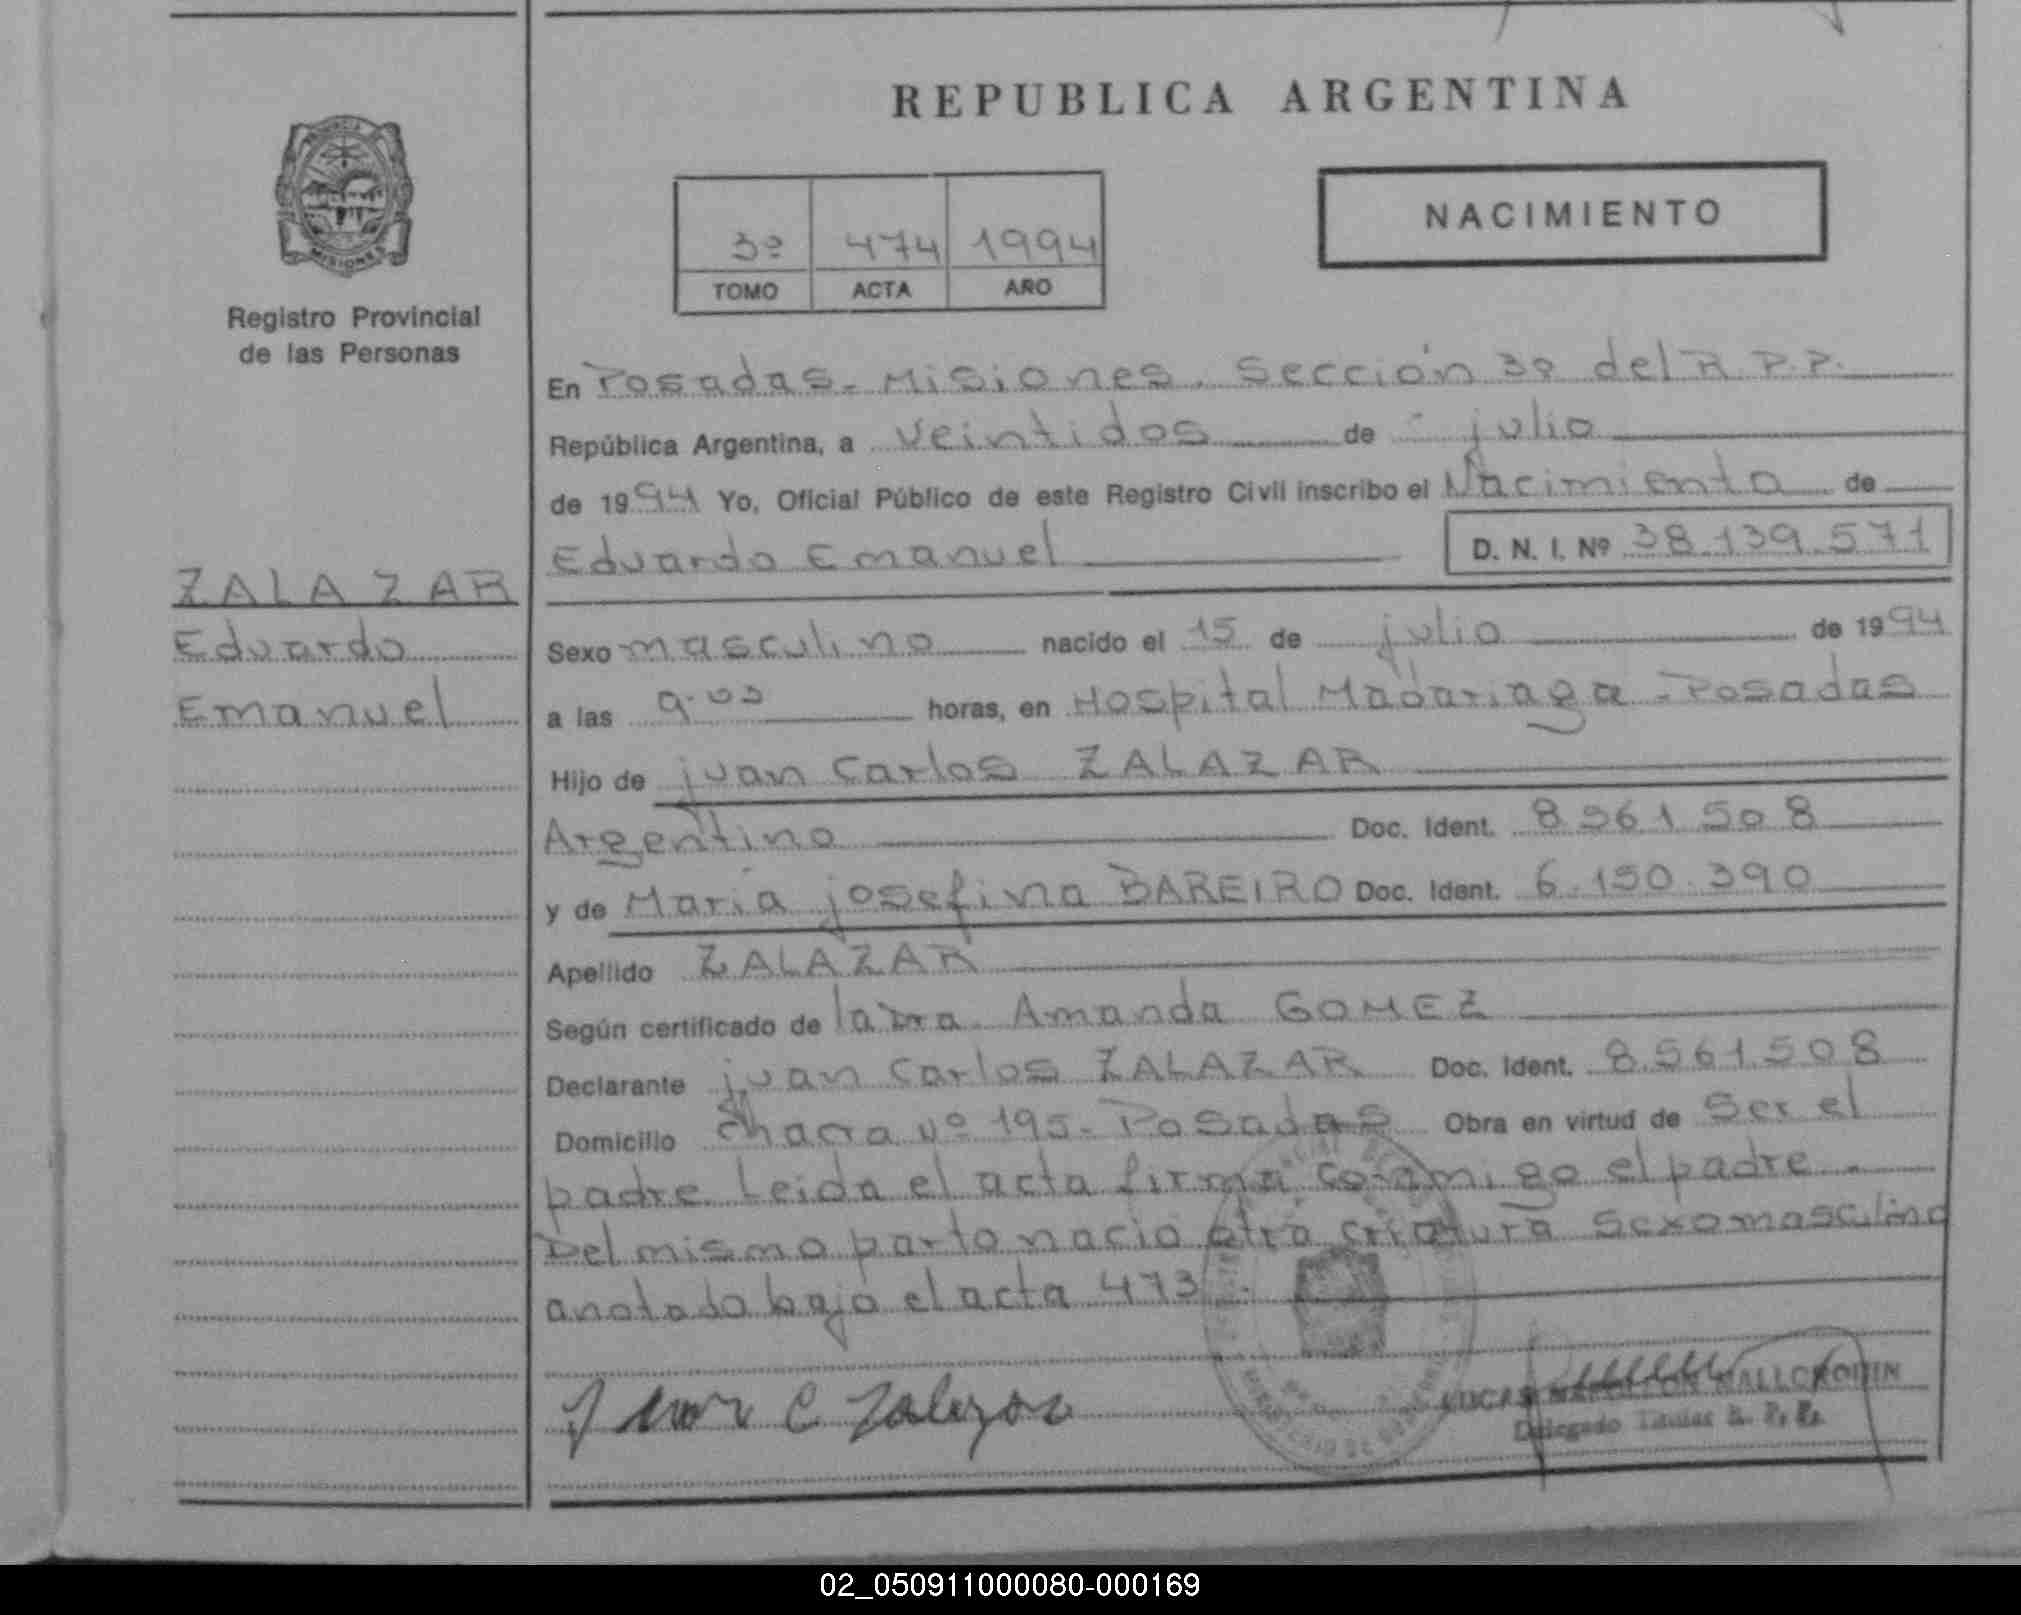 REPUBLICA ARGENTINA
PROVINCIA
MISIONES
Registro Provincial
de las Personas
3º 474 1994
TOMO ACTA AÑO
NACIMIENTO
En Posadas - Misiones. Sección 3º del R.P.P.
República Argentina, a veintidos de julio
de 1994 Yo, Oficial Público de este Registro Civil inscribo el Nacimiento de
Eduardo Emanuel D. N. I. Nº 38.139.571
ZALAZAR
Eduardo
Emanuel
Sexo masculino nacido el 15 de julio de 1994
a las horas, en Hospital Madariaga - Posadas
Hijo de juan Carlos ZALAZAR
Argentino Doc. Ident. 8561508
y de Maria josefina BAREIRO Doc. Ident. 6.150.390
Apellido ZALAZAR
Según certificado de la Dra. Amanda GOMEZ
Declarante juan Carlos ZALAZAR Doc. Ident. 8.561.508
Domicilio Chacra nº 195 - Posadas Obra en virtud de Ser el
padre. Leida el acta firma conmigo el padre.
Del mismo parto nacio otra criatura sexo masculino
anotado bajo el acta 473.
Juan C Zalazar
LUCAS MALLORQUIN
Delegado Titular R. P. P.
02_050911000080-000169